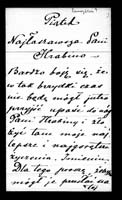 Piątek
Najłaskawsza Pani
Hrabino
Bardzo boję się, że
w tak brzydki czas
nie będę mógł jutro
przyjść upaść do nóg
Pani Hrabiny, zło
żyć tam moje naj
lepsze i najgorętsze
życzenia Imienin.
Dla tego proszę
mógł je